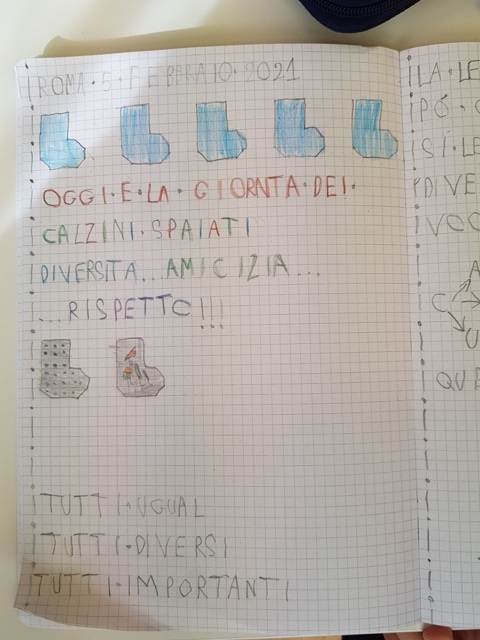 ROMA·5·FEBBRAIO·2021
OGGI·E·LA·GIORNTA·DEI·
CALZINI·SPAIATI
DIVERSITA...AMICIZIA...
...RISPETTO!!!
TUTTI·UGUAL
TUTTI·DIVERSI
TUTTI·IMPORTANTI
LA·LE
PÓ·
SI·LE
DIVE
VOC
A
C
U
QUE